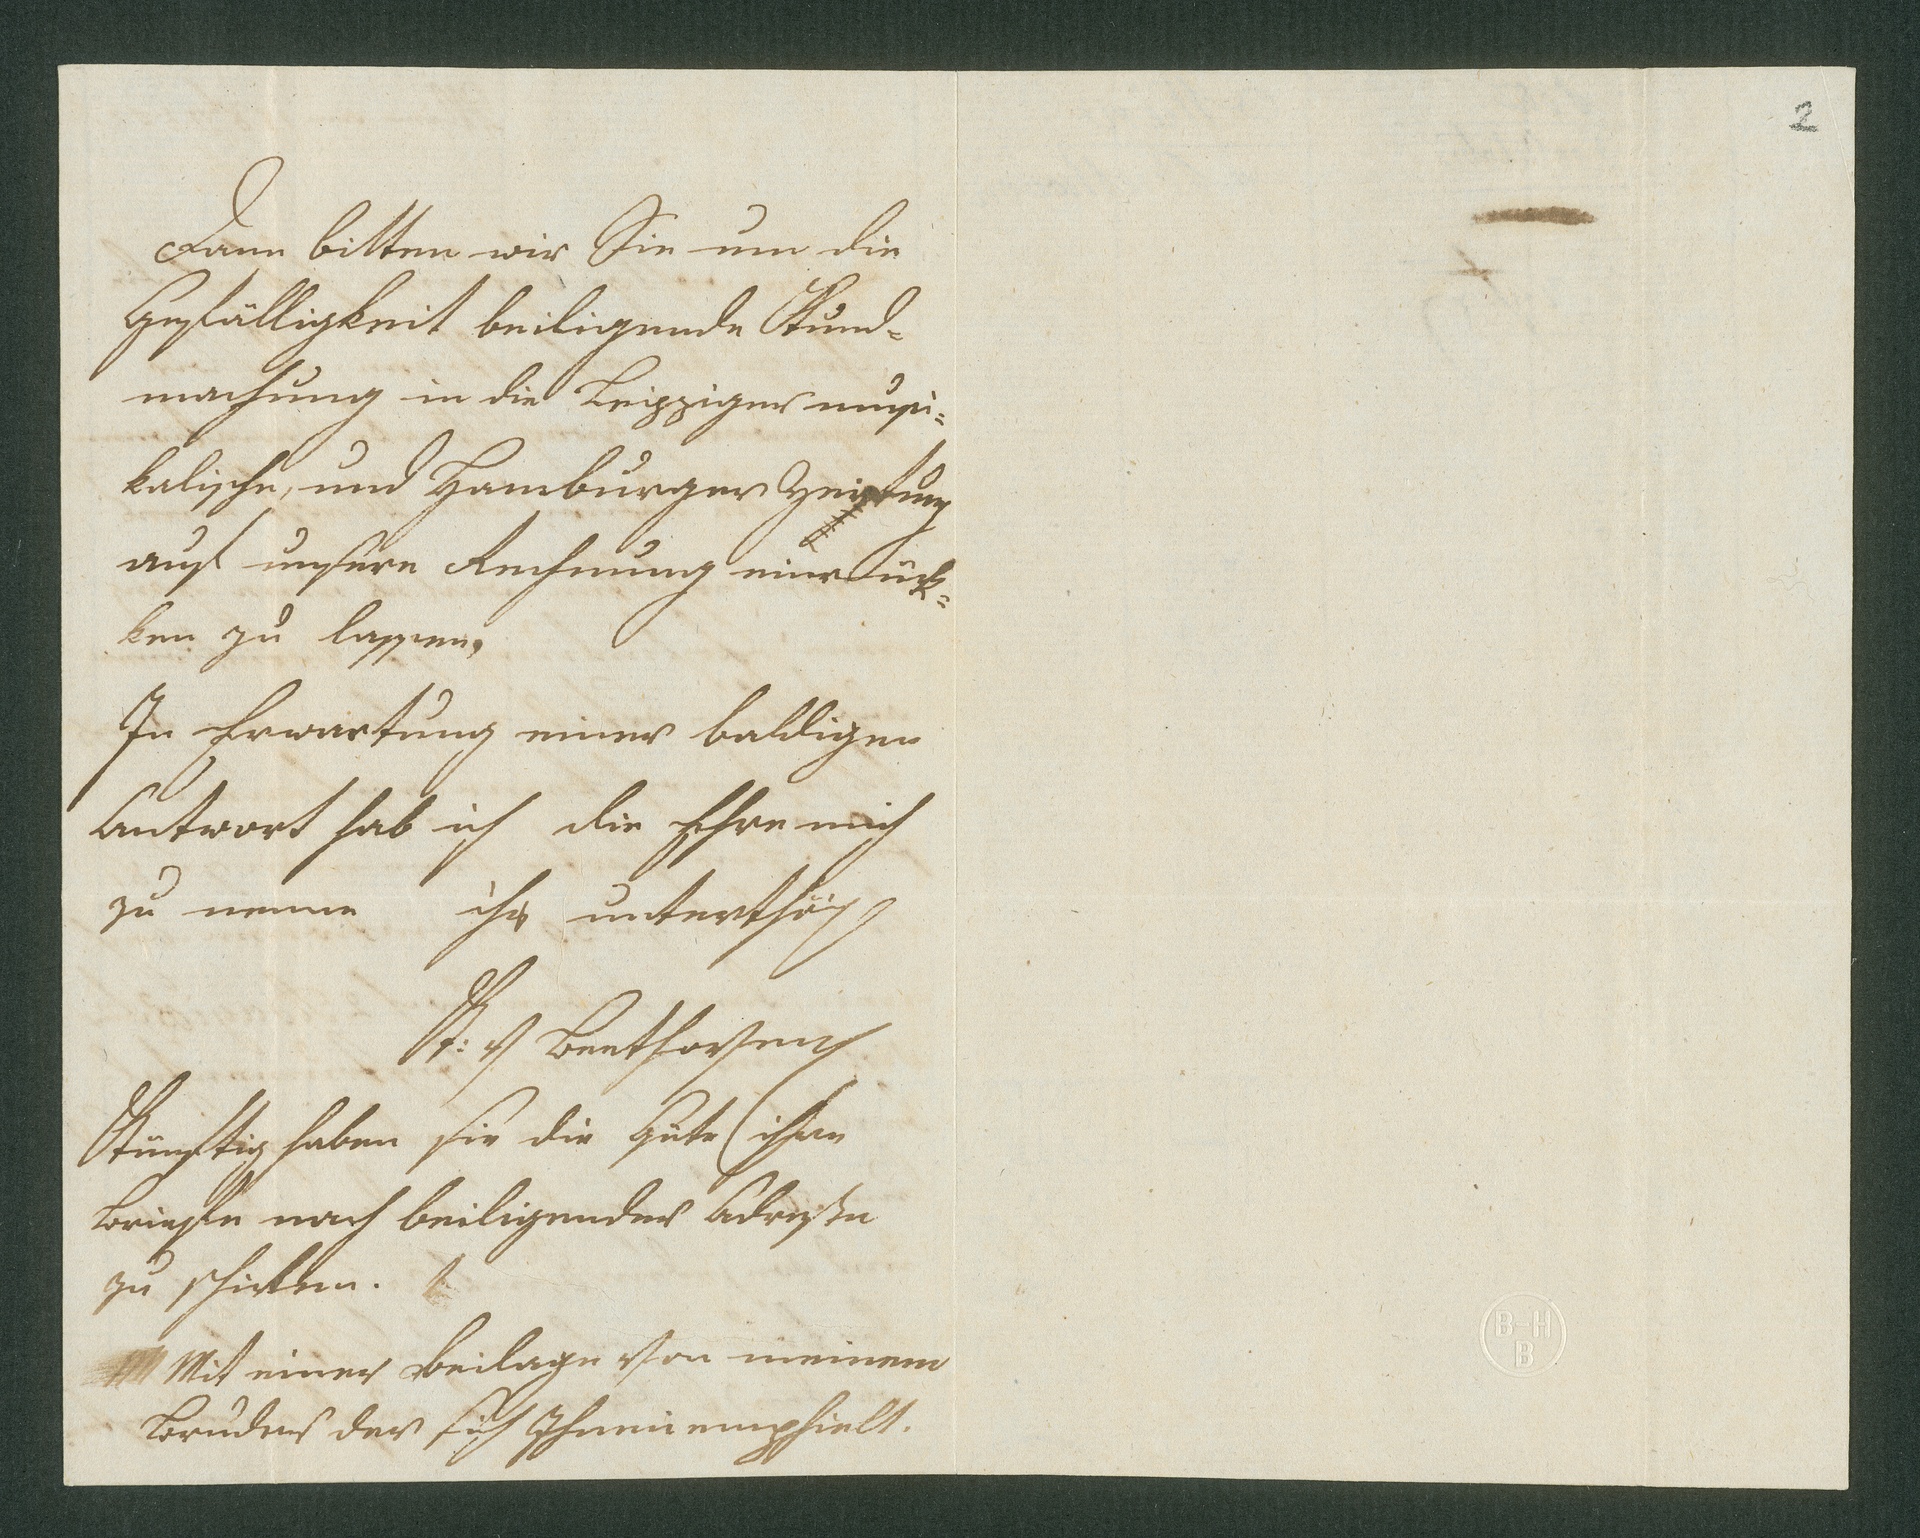 2
Dann bitten wir Sie um die
Gefälligkeit beiligende Kund-
machung in die Leipziger musi-
kalische, und Hamburger Zeitung
auf unsere Rechnung einrück-
ken zu lassen,
In Erwartung einer baldigen
Antwort hab ich die Ehre mich
zu nenne ihr unterthäg
K: v Beethoven
Künftig haben sie die Güte ihre
Briefe nach beiligender Adresse
zu schicken.
Mit einer Beilage von meinem
Bruder der sich Ihnen empfielt.
B-H
B